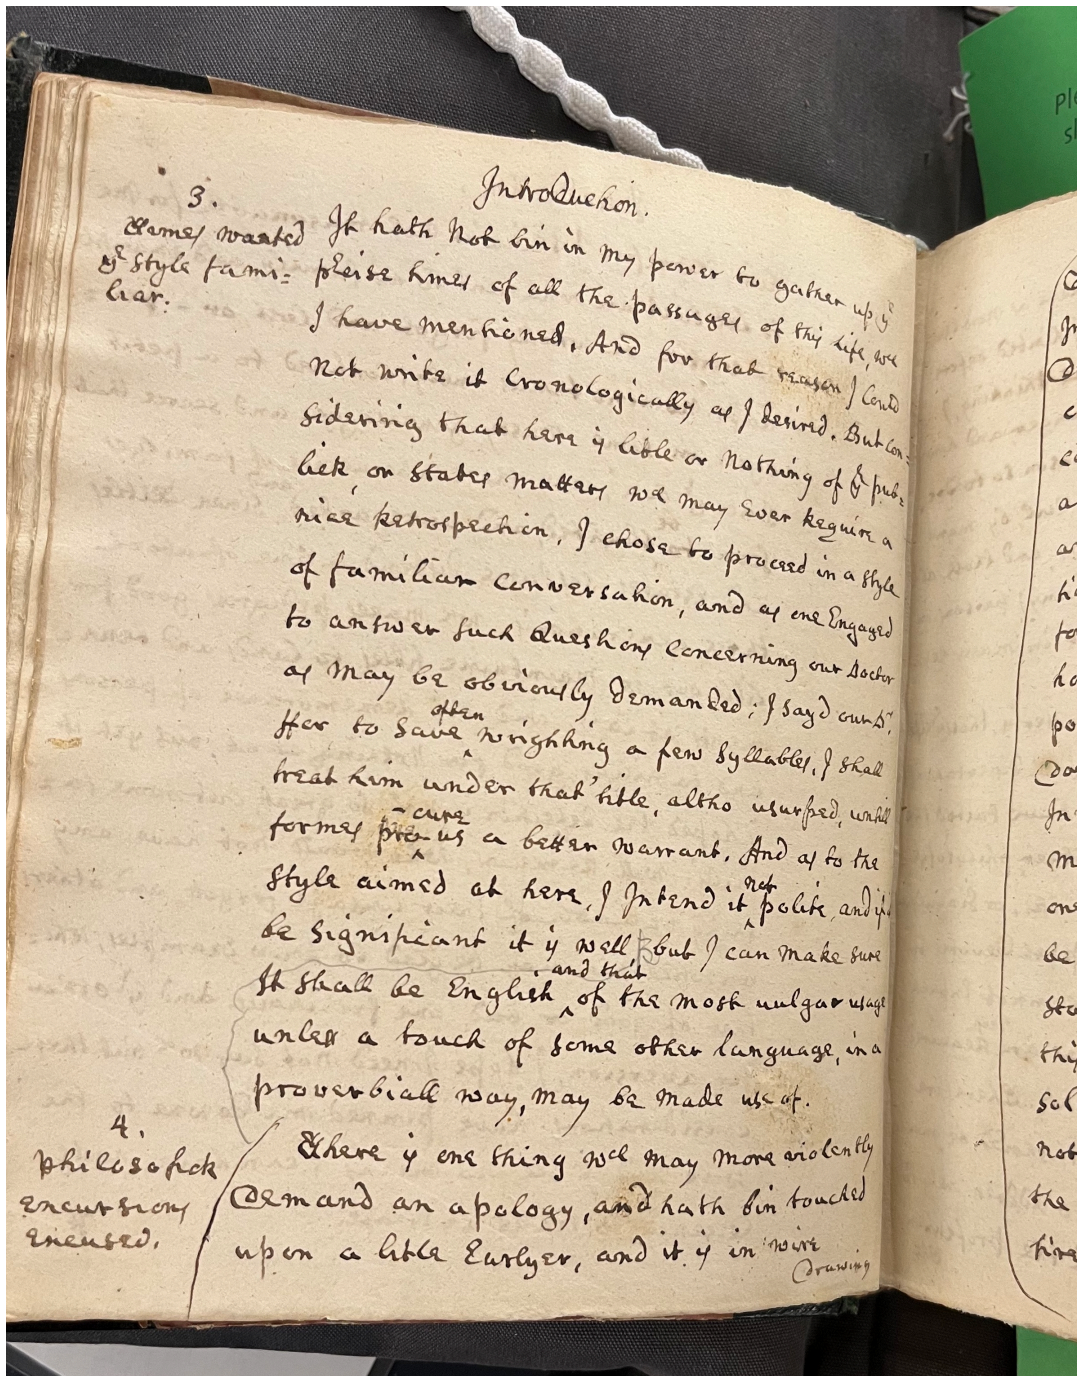 Introduction.
3.
Times wanted
yᵉ Style fami=
liar:
It hath Not bin in my power to gather up yᵉ
pʳcise times of all the passages of this life, wᶜʰ
I have mentioned, And for that reason I could
Not write it Cronologically as I desired. But con=
sidering that here is litle or Nothing of yᵉ pub=
lick, or States matters wᶜʰ may Ever Require a
nice Retrospection, I chose to proceed in a style
of familiar Conversation, and as one Engaged
to answer such Questions Concerning our Doctor
as may be obviously demanded; I say'd our Dʳ.
ffor to save often wrighting a few syllables, I shall
treat him under that title, altho usurped, untill
former pro-cure us a better warrant. And as to the
style aimed at here, I Intend it not polite, and if it
be significant it is well but I can make sure
It shall be English and that of the most vulgar usage
unless a touch of some other language, in a
proverbiall way, may be made use of.
4.
philosofick
excursions
excused.
There is one thing wᶜʰ may more violently
Demand an apology, and hath bin touched
upon a litle Earlyer, and it is in wire
drawing
pl
sl